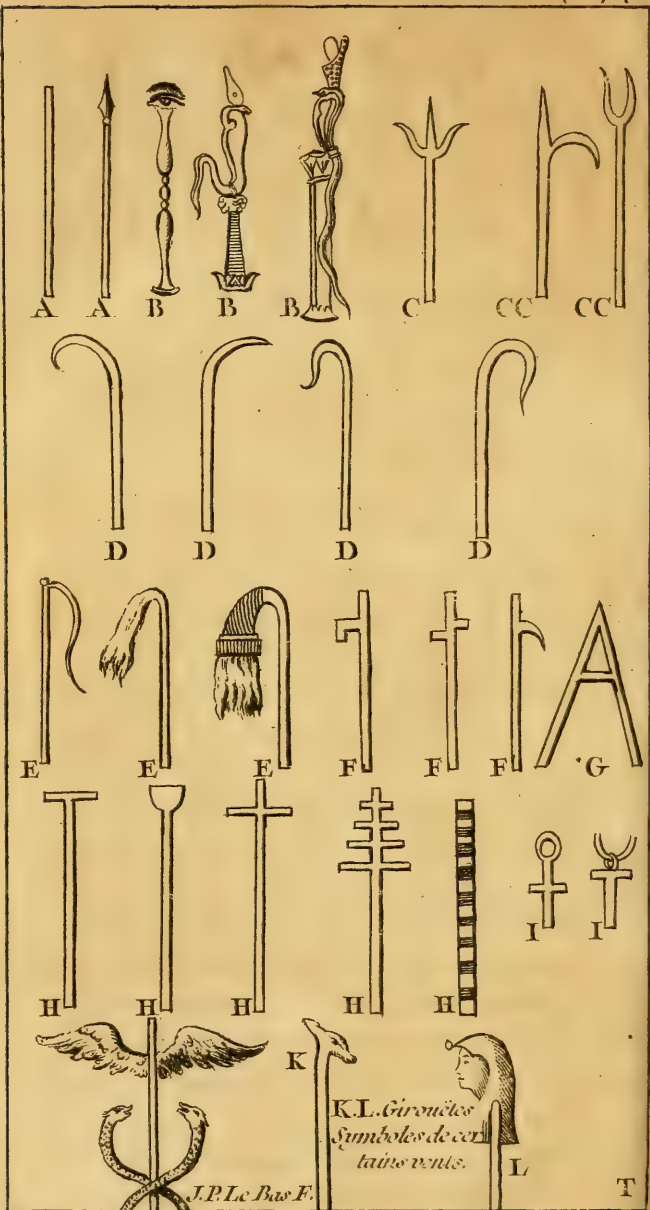 A A B B B C CC CC
D D D D
E E E F F F G
I I
H H H H H
K
K.L. Girouëtes
Symboles de cer
tains vents.
L
J.P. Le Bas F.
T